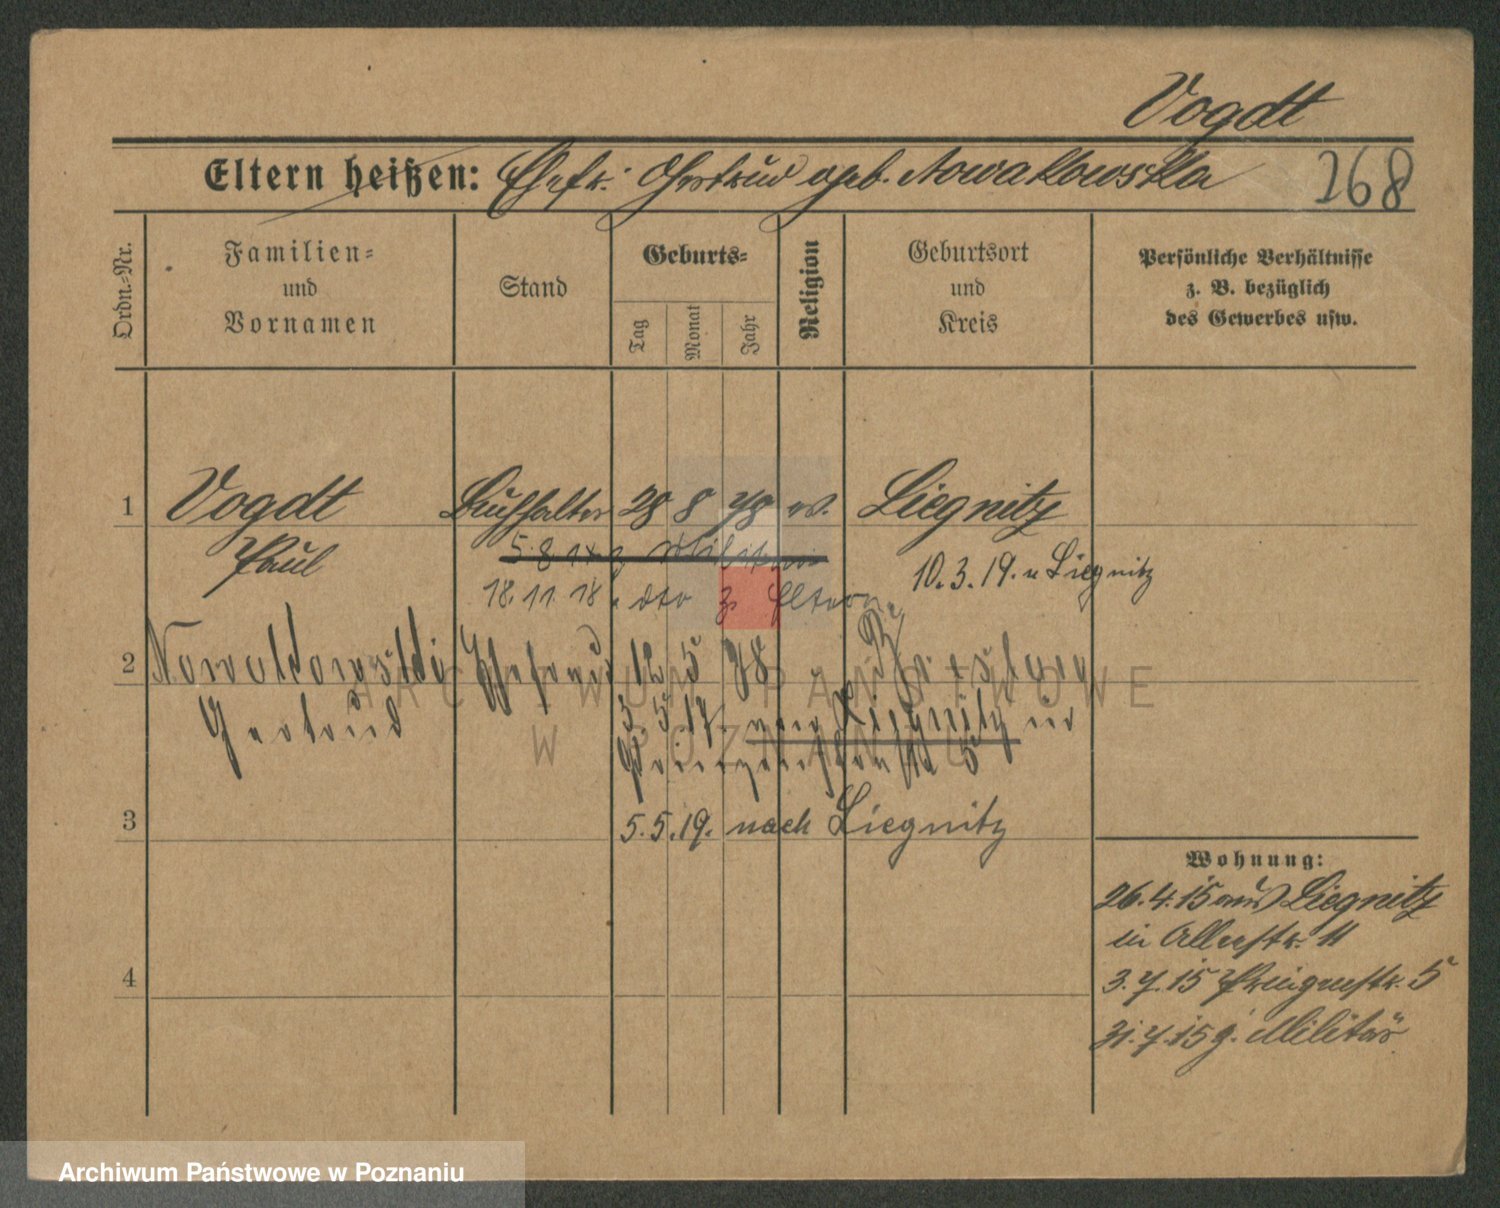 Vogdt
Eltern heißen: Ehefr. Gertrud geb. Nowakowska 268
Ordn.-Nr.
Familien-
und
Vornamen
Stand
Geburts-
Tag
Monat
Jahr
Religion
Geburtsort
und
Kreis
Persönliche Verhältnisse
z. B. bezüglich
des Gewerbes usw.
1 Vogdt Buchhalter 28 8 78 ev. Liegnitz
Paul
5. 8. Militär
10.3.19. n Liegnitz
18.11.18. dto z. Eltern
2 Nowakowski Ehefrau 12 5 78 Breslau
Gertrud
3. 5. 17. von Liegnitz in
5
3 5.5.19. nach Liegnitz
4
Wohnung:
26.4.15 aus Liegnitz
in Alleestr. 11
3.7.15 Prinzenstr. 5
31.7.15 z. Militär
ARCHIWUM PAŃSTWOWE
W POZNANIU
Archiwum Państwowe w Poznaniu